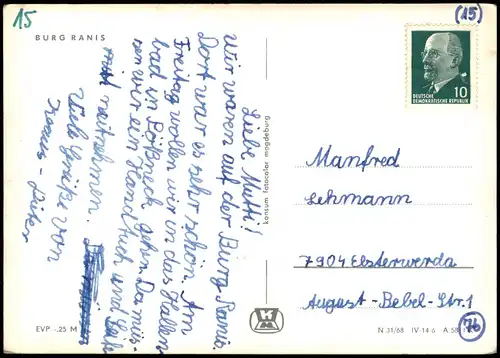 15
(15)
BURG RANIS
10
DEUTSCHE
DEMOKRATISCHE REPUBLIK
Liebe Mutti!
Wir waren auf der Burg Ranis.
Dort war es sehr schön. Am
Freitag wollen wir in das Hallen-
bad in Pößneck gehn. Da müs-
sen wir ein Handtuch und Seife
mitnehmen.
Viele Grüße von
konsum fotocolor magdeburg
Manfred
Lehmann
7904 Elsterwerda
August-Bebel-Str. 1
76
EVP -.25 M
N 31/68 IV-14-6 A 58